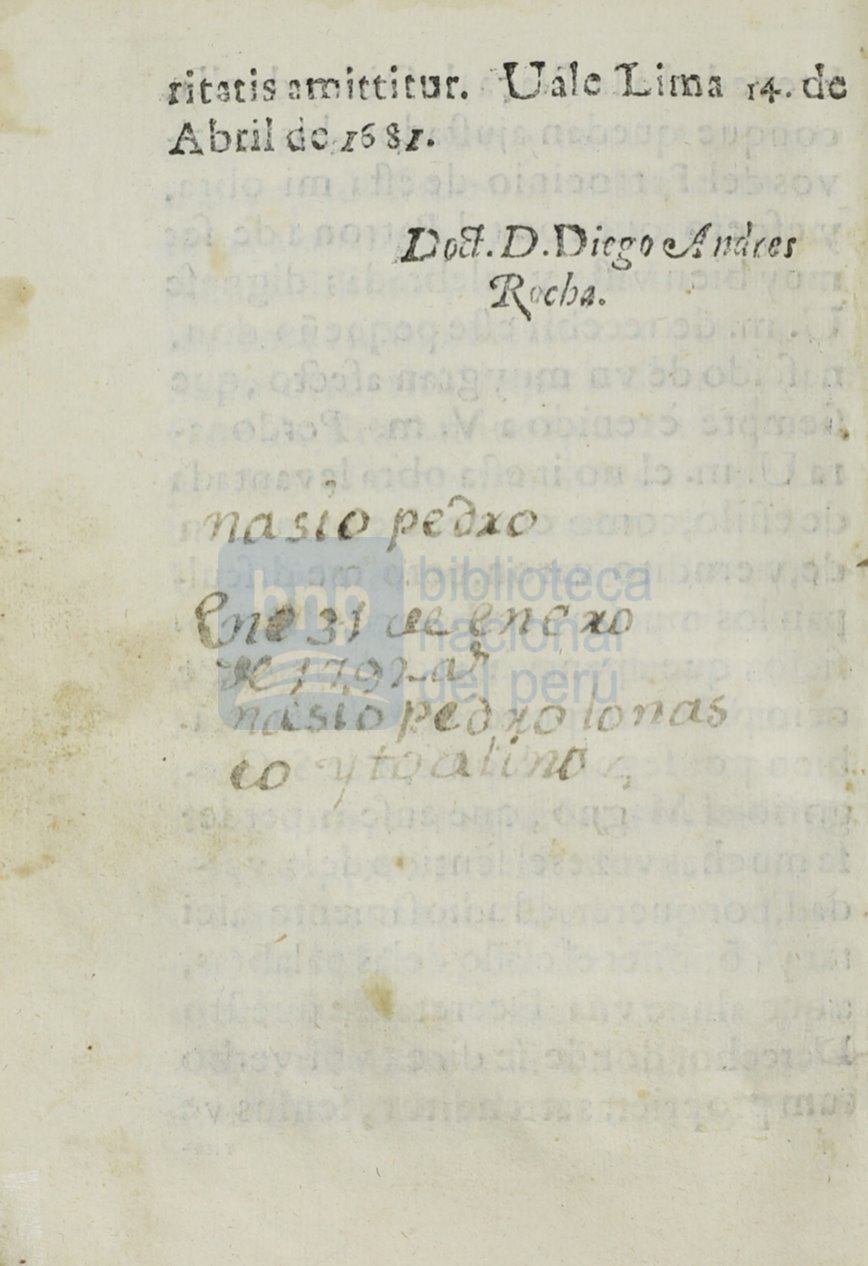 ritatis amittitur. Uale Lima 14. de
Abril de 1681.
Doct. D. Diego Andres
Rocha.
nasio pedro
En e 31 de enero
de 1792 as
nasio pedro lonas
co y to alino
bnp biblioteca
nacional
del perú